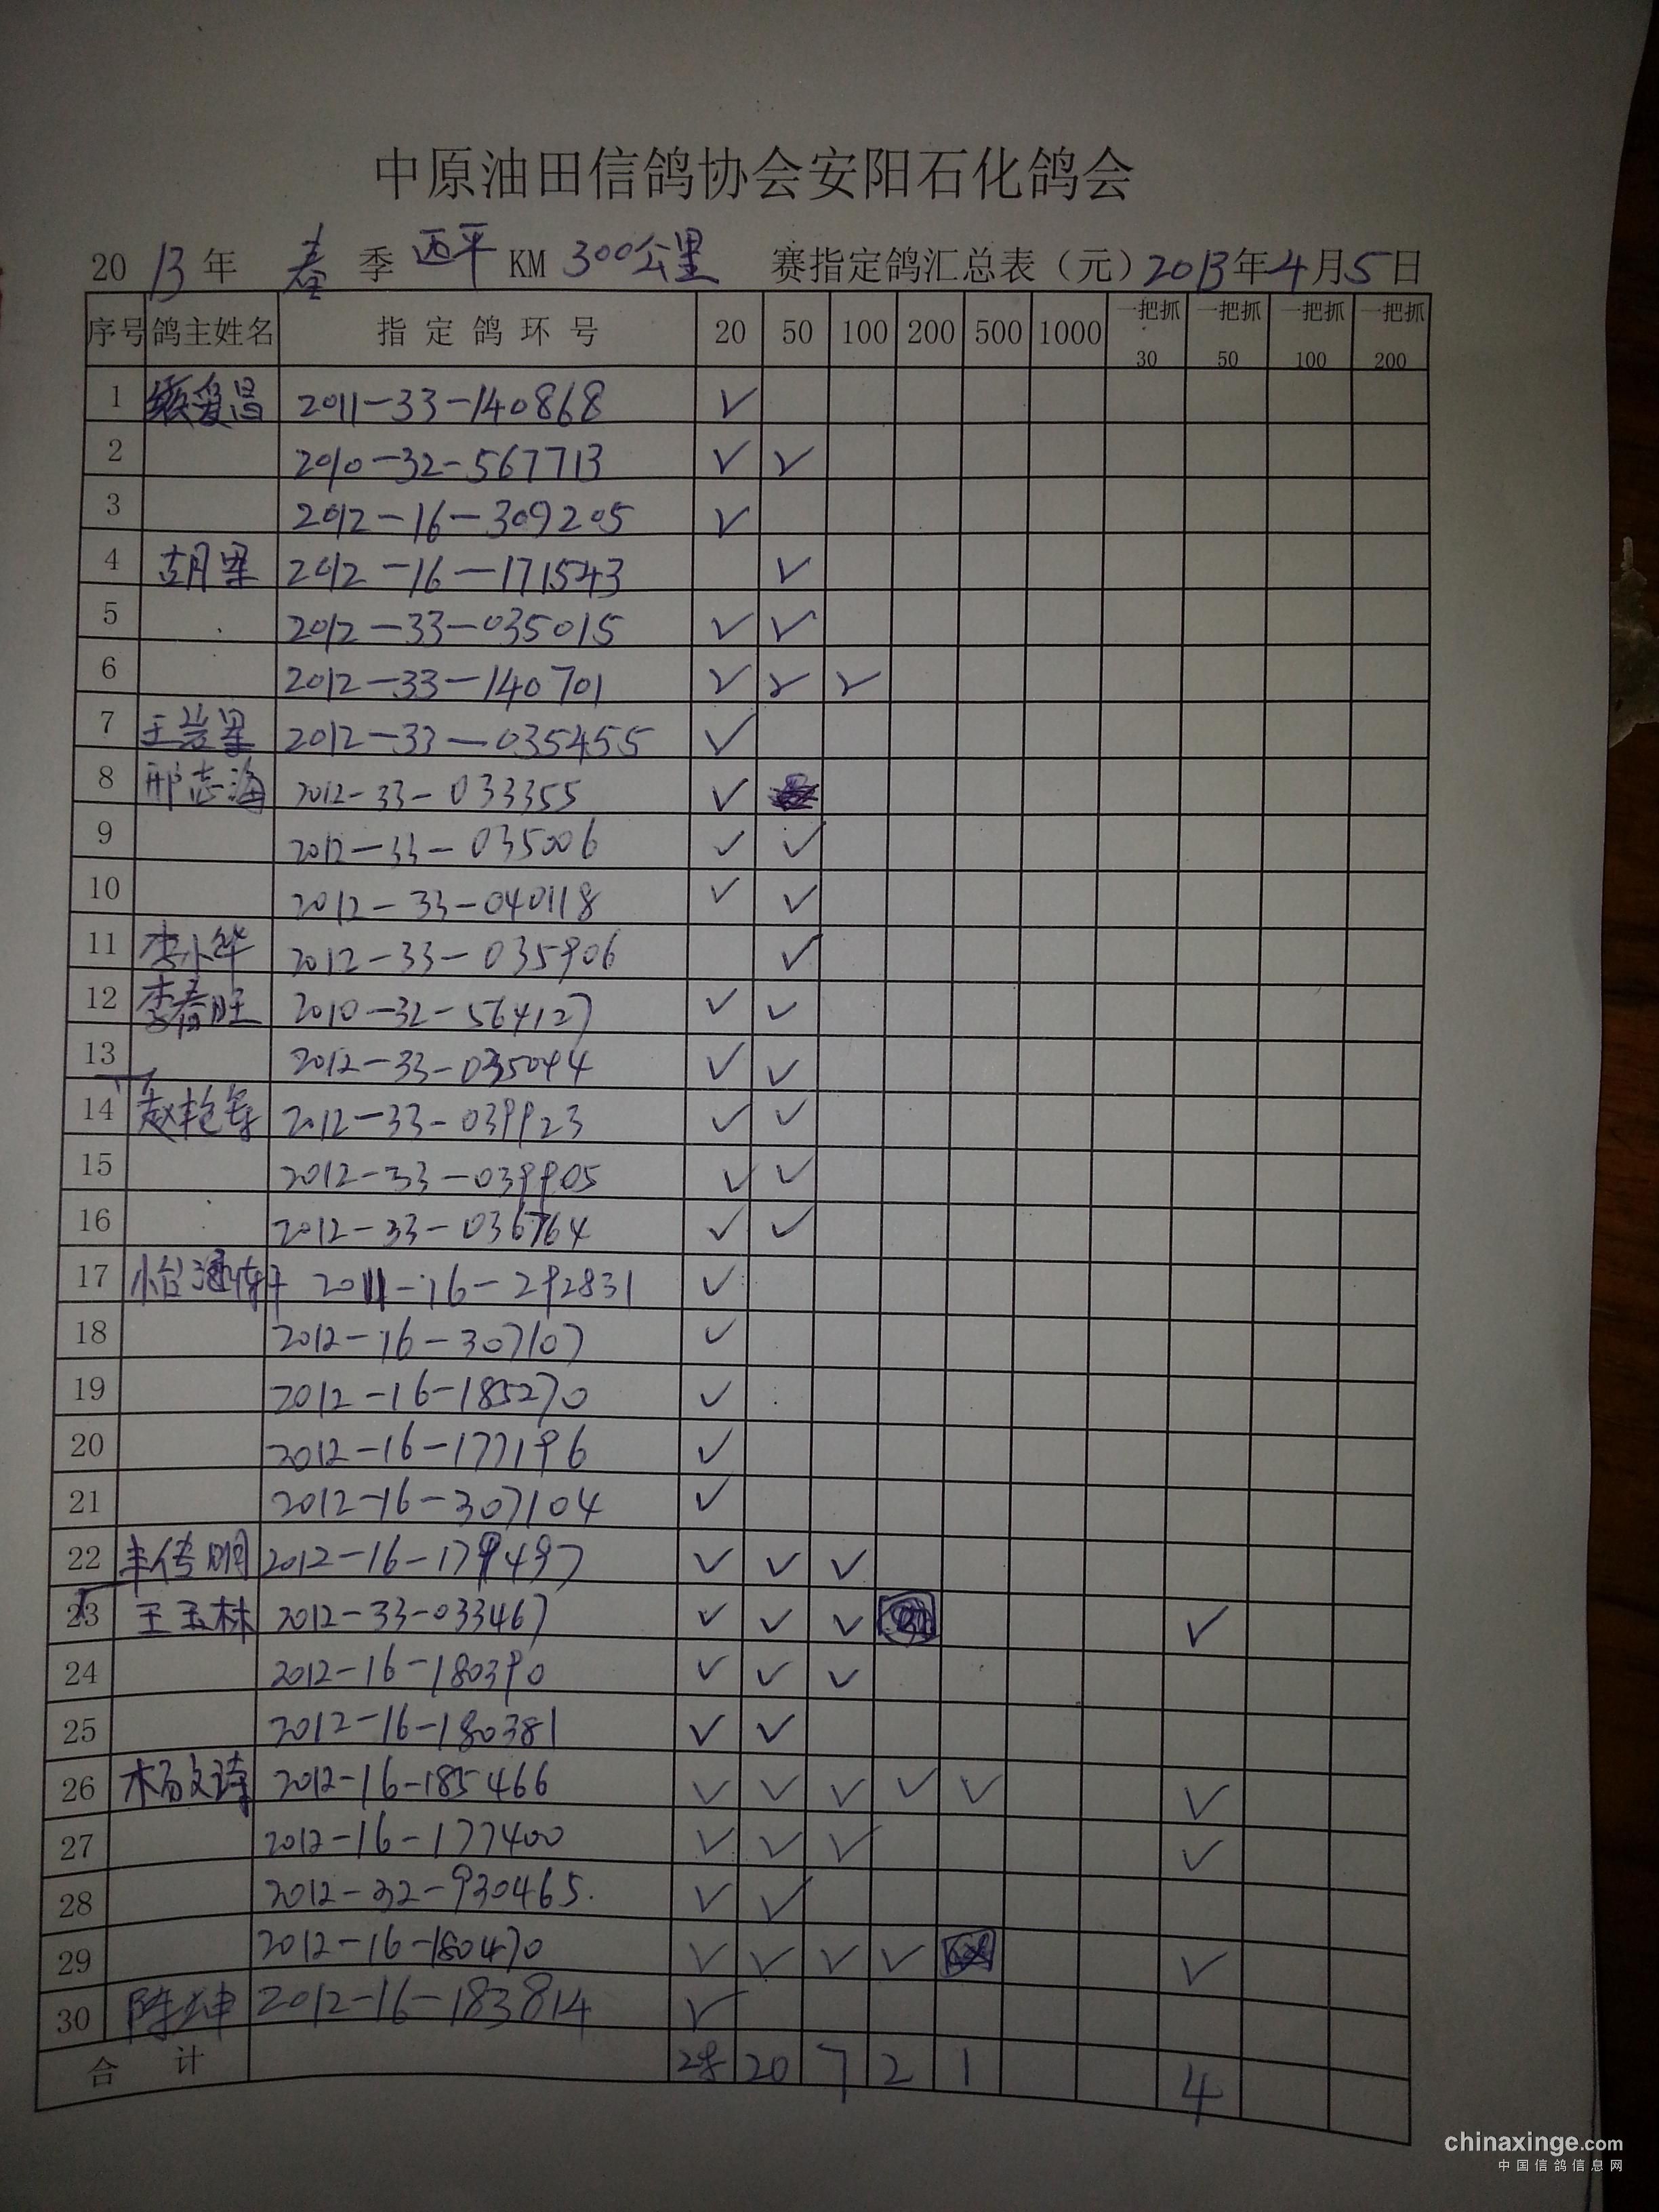 中原油田信鸽协会安阳石化鸽会
2013年 春 季 西平 KM 300公里 赛指定鸽汇总表（元）2013年4月5日
序号 鸽主姓名 指定鸽环号 20 50 100 200 500 1000 一把抓30 一把抓50 一把抓100 一把抓200
1 2011-33-140868 ✓
2 2010-32-567713 ✓ ✓
3 2012-16-309205 ✓
4 2012-16-171543 ✓
5 2012-33-035015 ✓ ✓
6 2012-33-140701 ✓ ✓ ✓
7 2012-33-035455 ✓
8 邢志海 2012-33-033355 ✓
9 2012-33-035006 ✓ ✓
10 2012-33-040118 ✓ ✓
11 李小华 2012-33-035906 ✓
12 李春旺 2010-32-564127 ✓ ✓
13 2012-33-035044 ✓ ✓
14 2012-33-039923 ✓ ✓
15 2012-33-039905 ✓ ✓
16 2012-33-036764 ✓ ✓
17 2011-16-292831 ✓
18 2012-16-307107 ✓
19 2012-16-185270 ✓
20 2012-16-177196 ✓
21 2012-16-307104 ✓
22 丰传明 2012-16-179497 ✓ ✓ ✓
23 王玉林 2012-33-033467 ✓ ✓ ✓ ✓
24 2012-16-180390 ✓ ✓ ✓
25 2012-16-180381 ✓ ✓
26 杨文琦 2012-16-185466 ✓ ✓ ✓ ✓ ✓ ✓
27 2012-16-177400 ✓ ✓ ✓ ✓
28 2012-32-930465. ✓ ✓
29 2012-16-180470 ✓ ✓ ✓ ✓ ✓
30 陈坤 2012-16-183814 ✓
合计 28 20 7 2 1 4
chinaxinge.com
中国信鸽信息网